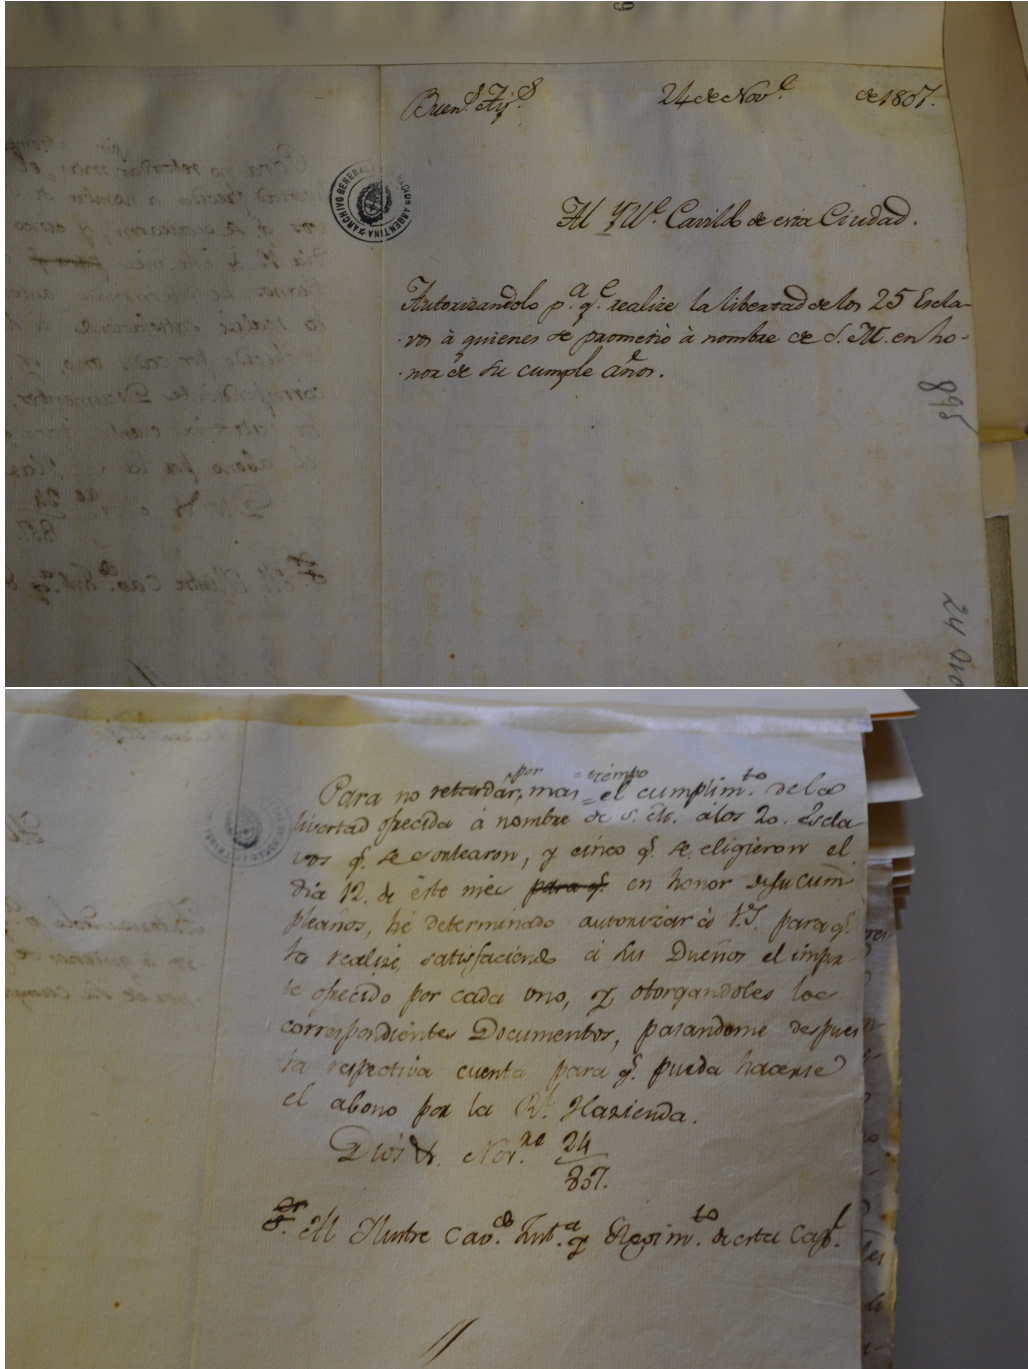 Buen.s Ay.s 24 de Nov.e de 1807.
Al Yll.e Cavildo de esta Ciudad.
ARCHIVO GENERAL DE LA NACION ARGENTINA
Autorizandolo p.a q.e realize la libertad de los 25 Escla-
vos à quienes se prometió à nombre de S. M. en ho-
nor de su cumple años.
895
24 Nov
Para no retardar por mas tiempo el cumplim.to de la
livertad ofrecida à nombre de S. M. á los 20. Escla
vos q.e se sortearon, y cinco q.e se eligieron el
dia 12. de éste mes para q.e en honor de su cum
pleaños, hé determinado autorizar à V.S. para q.e
la realize, satisfaciendo á sus Dueños el impor
te ofrecido por cada uno, y otorgandoles los
correspondientes Documentos, pasandome despues
la respectiva cuenta para q.e pueda hacerse
el abono por la R.l Hazienda.
Dios &. Nov.re 24
807.
Al Ilustre Cav.do Just.a y Regim.to de esta Cap.l